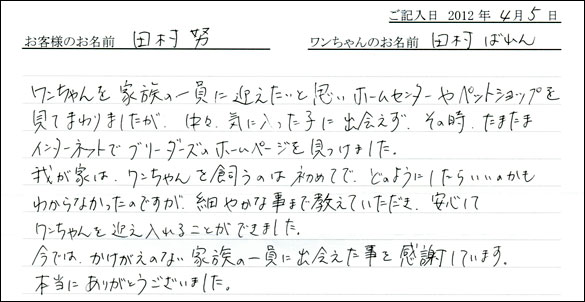 ご記入日 2012 年 4 月 5 日
お客様のお名前 田村 努 ワンちゃんのお名前 田村 ばれん
ワンちゃんを家族の一員に迎えたいと思いホームセンターやペットショップを
見てまわりましたが、中々、気に入った子に出会えず、その時、たまたま
インターネットでブリーダーズのホームページを見つけました。
我が家は、ワンちゃんを飼うのは初めてで、どのようにしたらいいのかも
わからなかったのですが、細やかな事まで教えていただき、安心して
ワンちゃんを迎え入れることができました。
今では、かけがえのない家族の一員に出会えた事を感謝しています。
本当にありがとうございました。